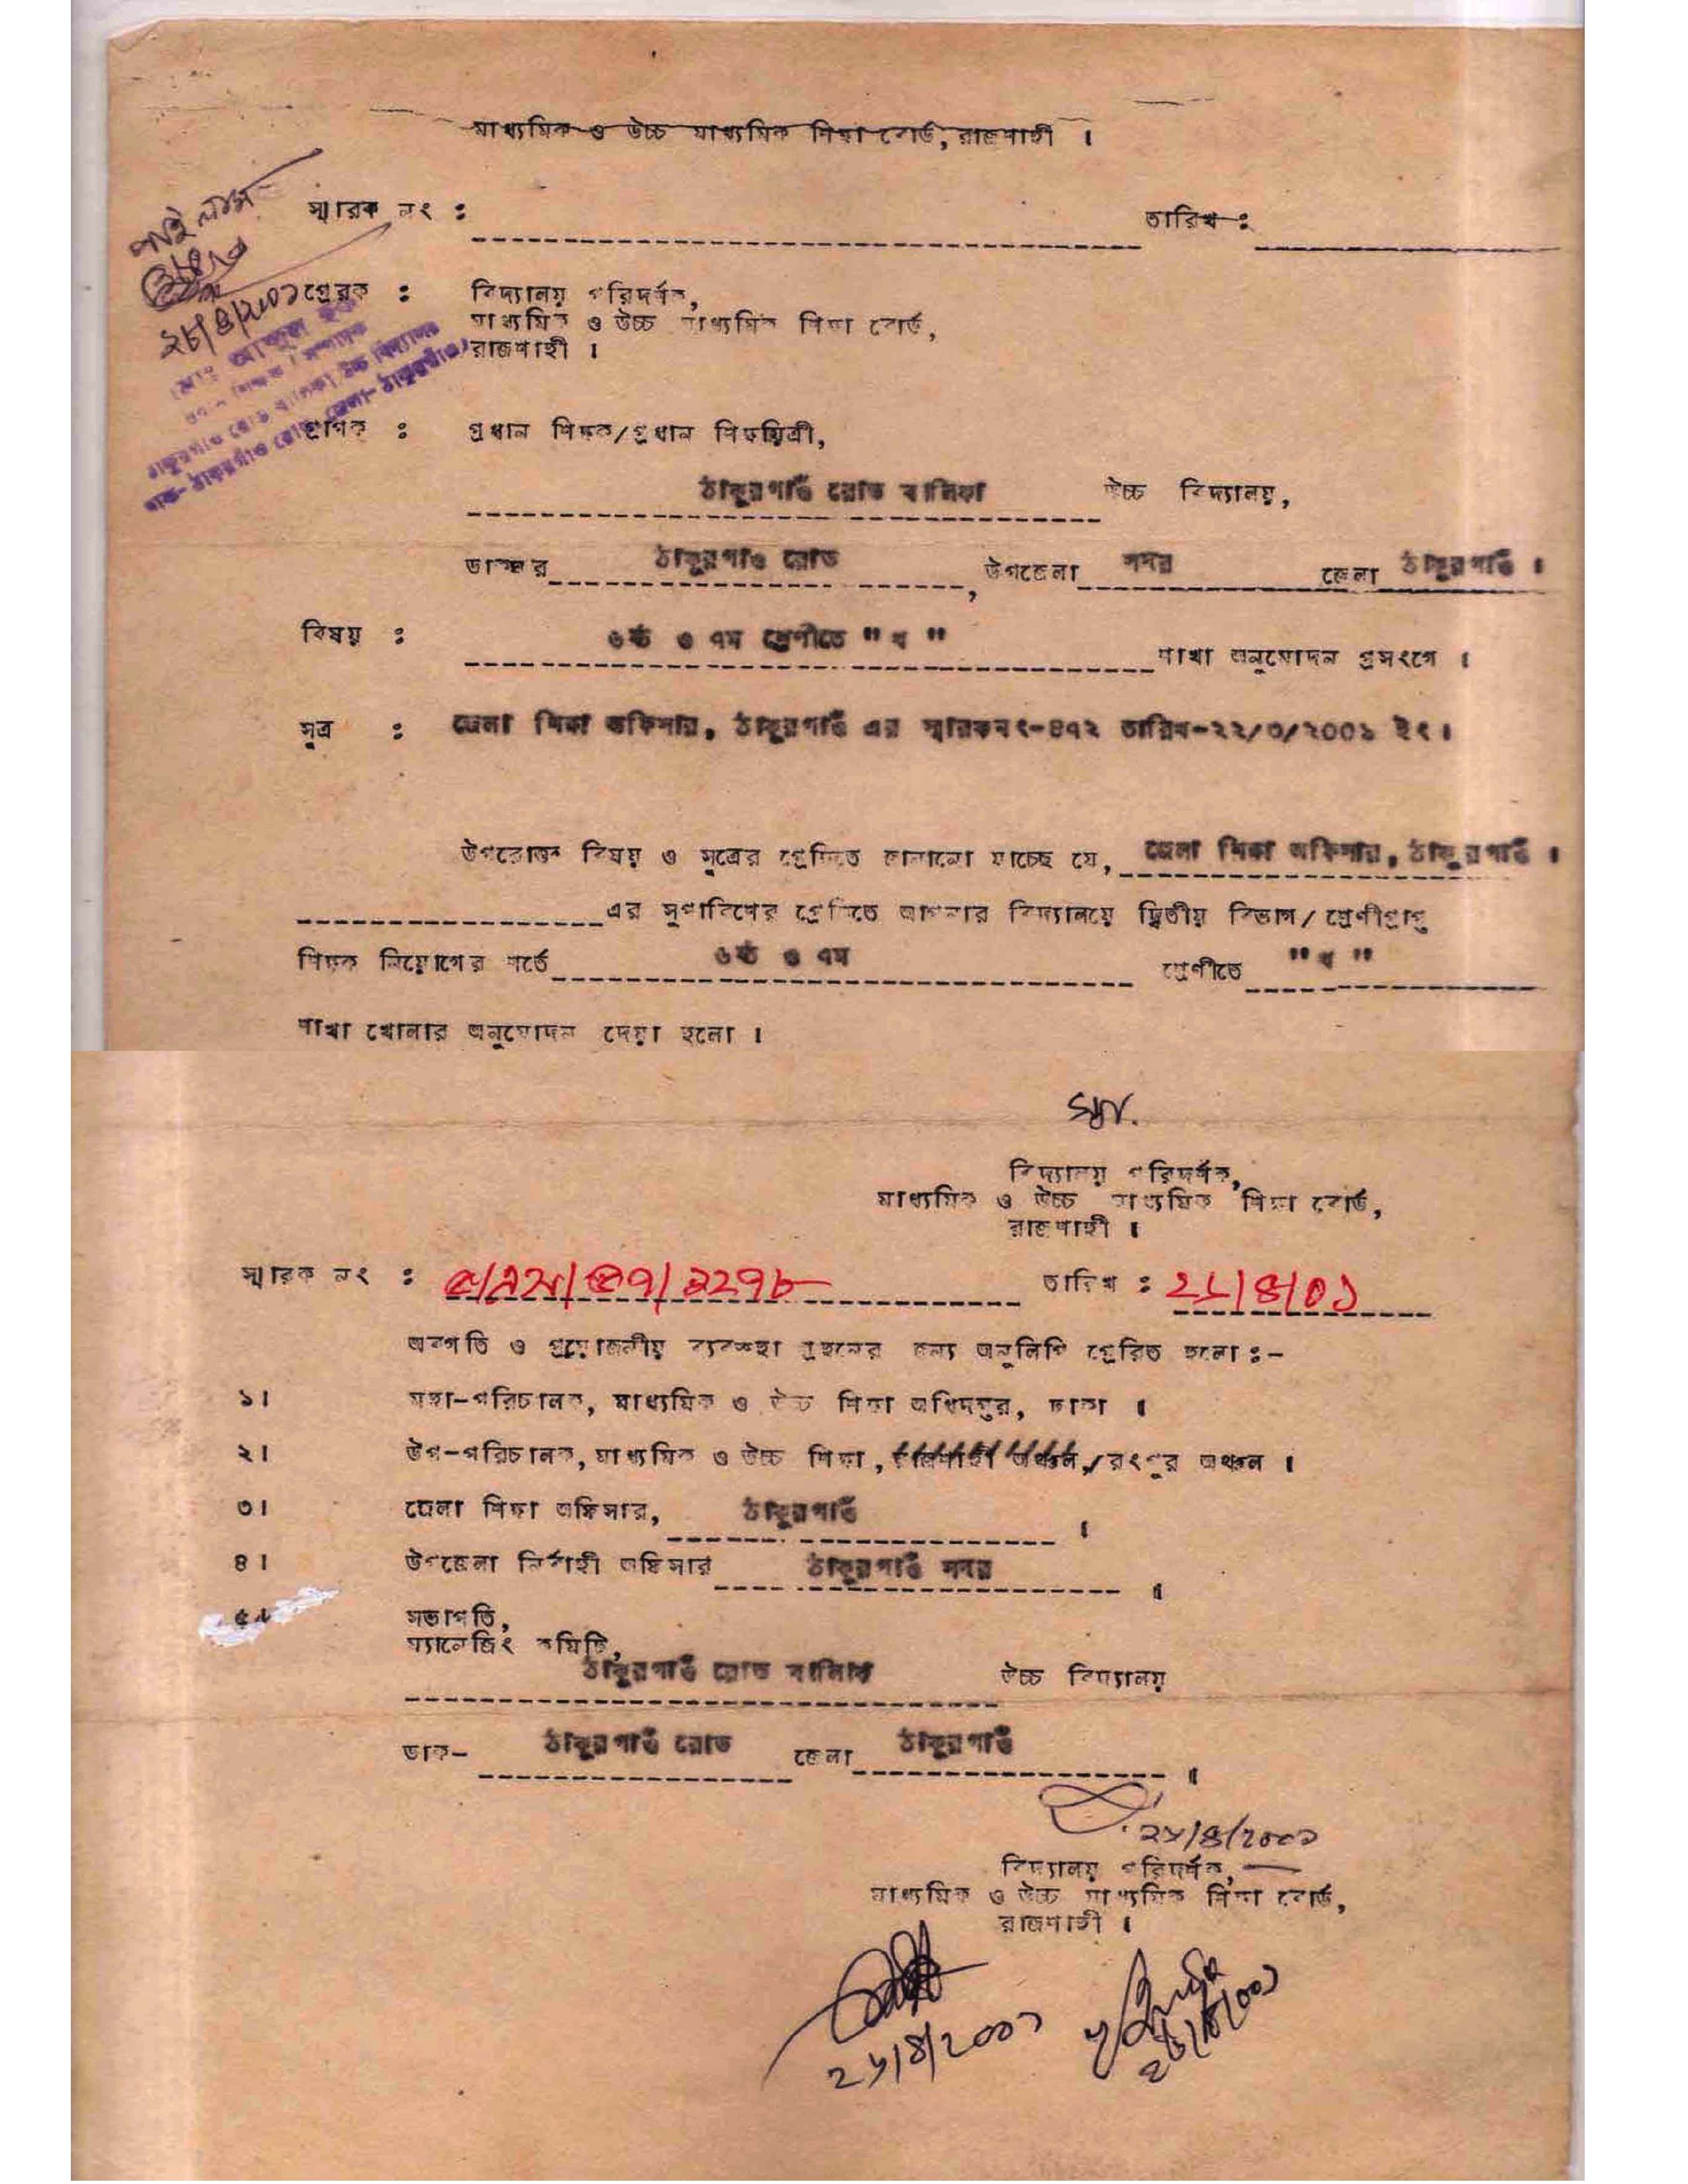 মাধ্যমিক ও উচ্চ মাধ্যমিক শিক্ষা বোর্ড, রাজশাহী ।
স্মারক নং :
তারিখ :
প্রেরক : বিদ্যালয় পরিদর্শক,
মাধ্যমিক ও উচ্চ মাধ্যমিক শিক্ষা বোর্ড,
রাজশাহী ।
প্রাপক : প্রধান শিক্ষক/প্রধান শিক্ষয়িত্রী,
ঠাকুরগাওঁ রোড বালিকা উচ্চ বিদ্যালয়,
ডাকঘর ঠাকুরগাও রোড , উপজেলা সদর জেলা ঠাকুরগাওঁ ।
বিষয় : ৬ষ্ঠ ও ৭ম শ্রেণীতে " খ " শাখা অনুমোদন প্রসংগে ।
সূত্র : জেলা শিক্ষা অফিসার, ঠাকুরগাওঁ এর স্মারকনং-৪৭২ তারিখ-২২/৩/২০০১ ইং।
উপরোক্ত বিষয় ও সূত্রের প্রেক্ষিতে জানানো যাচ্ছে যে, জেলা শিক্ষা অফিসার, ঠাকুরগাওঁ ।
এর সুপারিশের প্রেক্ষিতে আপনার বিদ্যালয়ে দ্বিতীয় বিভাগ/ শ্রেণীপ্রাপ্ত
শিক্ষক নিয়োগের শর্তে ৬ষ্ঠ ও ৭ম শ্রেণীতে " খ "
শাখা খোলার অনুমোদন দেয়া হলো ।
বিদ্যালয় পরিদর্শক,
মাধ্যমিক ও উচ্চ মাধ্যমিক শিক্ষা বোর্ড,
রাজশাহী ।
স্মারক নং :
তারিখ : ২৮/৪/০১
অবগতি ও প্রয়োজনীয় ব্যবস্হা গ্রহনের জন্য অনুলিপি প্রেরিত হলো :-
১। মহা-পরিচালক, মাধ্যমিক ও উচ্চ শিক্ষা অধিদপ্তর, ঢাকা ।
২। উপ-পরিচালক, মাধ্যমিক ও উচ্চ শিক্ষা, রাজশাহী অঞ্চল,/রংপুর অঞ্চল ।
৩। জেলা শিক্ষা অফিসার, ঠাকুরগাওঁ ।
৪। উপজেলা নির্বাহী অফিসার ঠাকুরগাওঁ সদর ।
৫। সভাপতি,
ম্যানেজিং কমিটি,
ঠাকুরগাওঁ রোড বালিকা উচ্চ বিদ্যালয়
ডাক- ঠাকুরগাওঁ রোড জেলা ঠাকুরগাওঁ ।
২৮/৪/২০০১
বিদ্যালয় পরিদর্শক,
মাধ্যমিক ও উচ্চ মাধ্যমিক শিক্ষা বোর্ড,
রাজশাহী ।
২৮/৪/২০০১